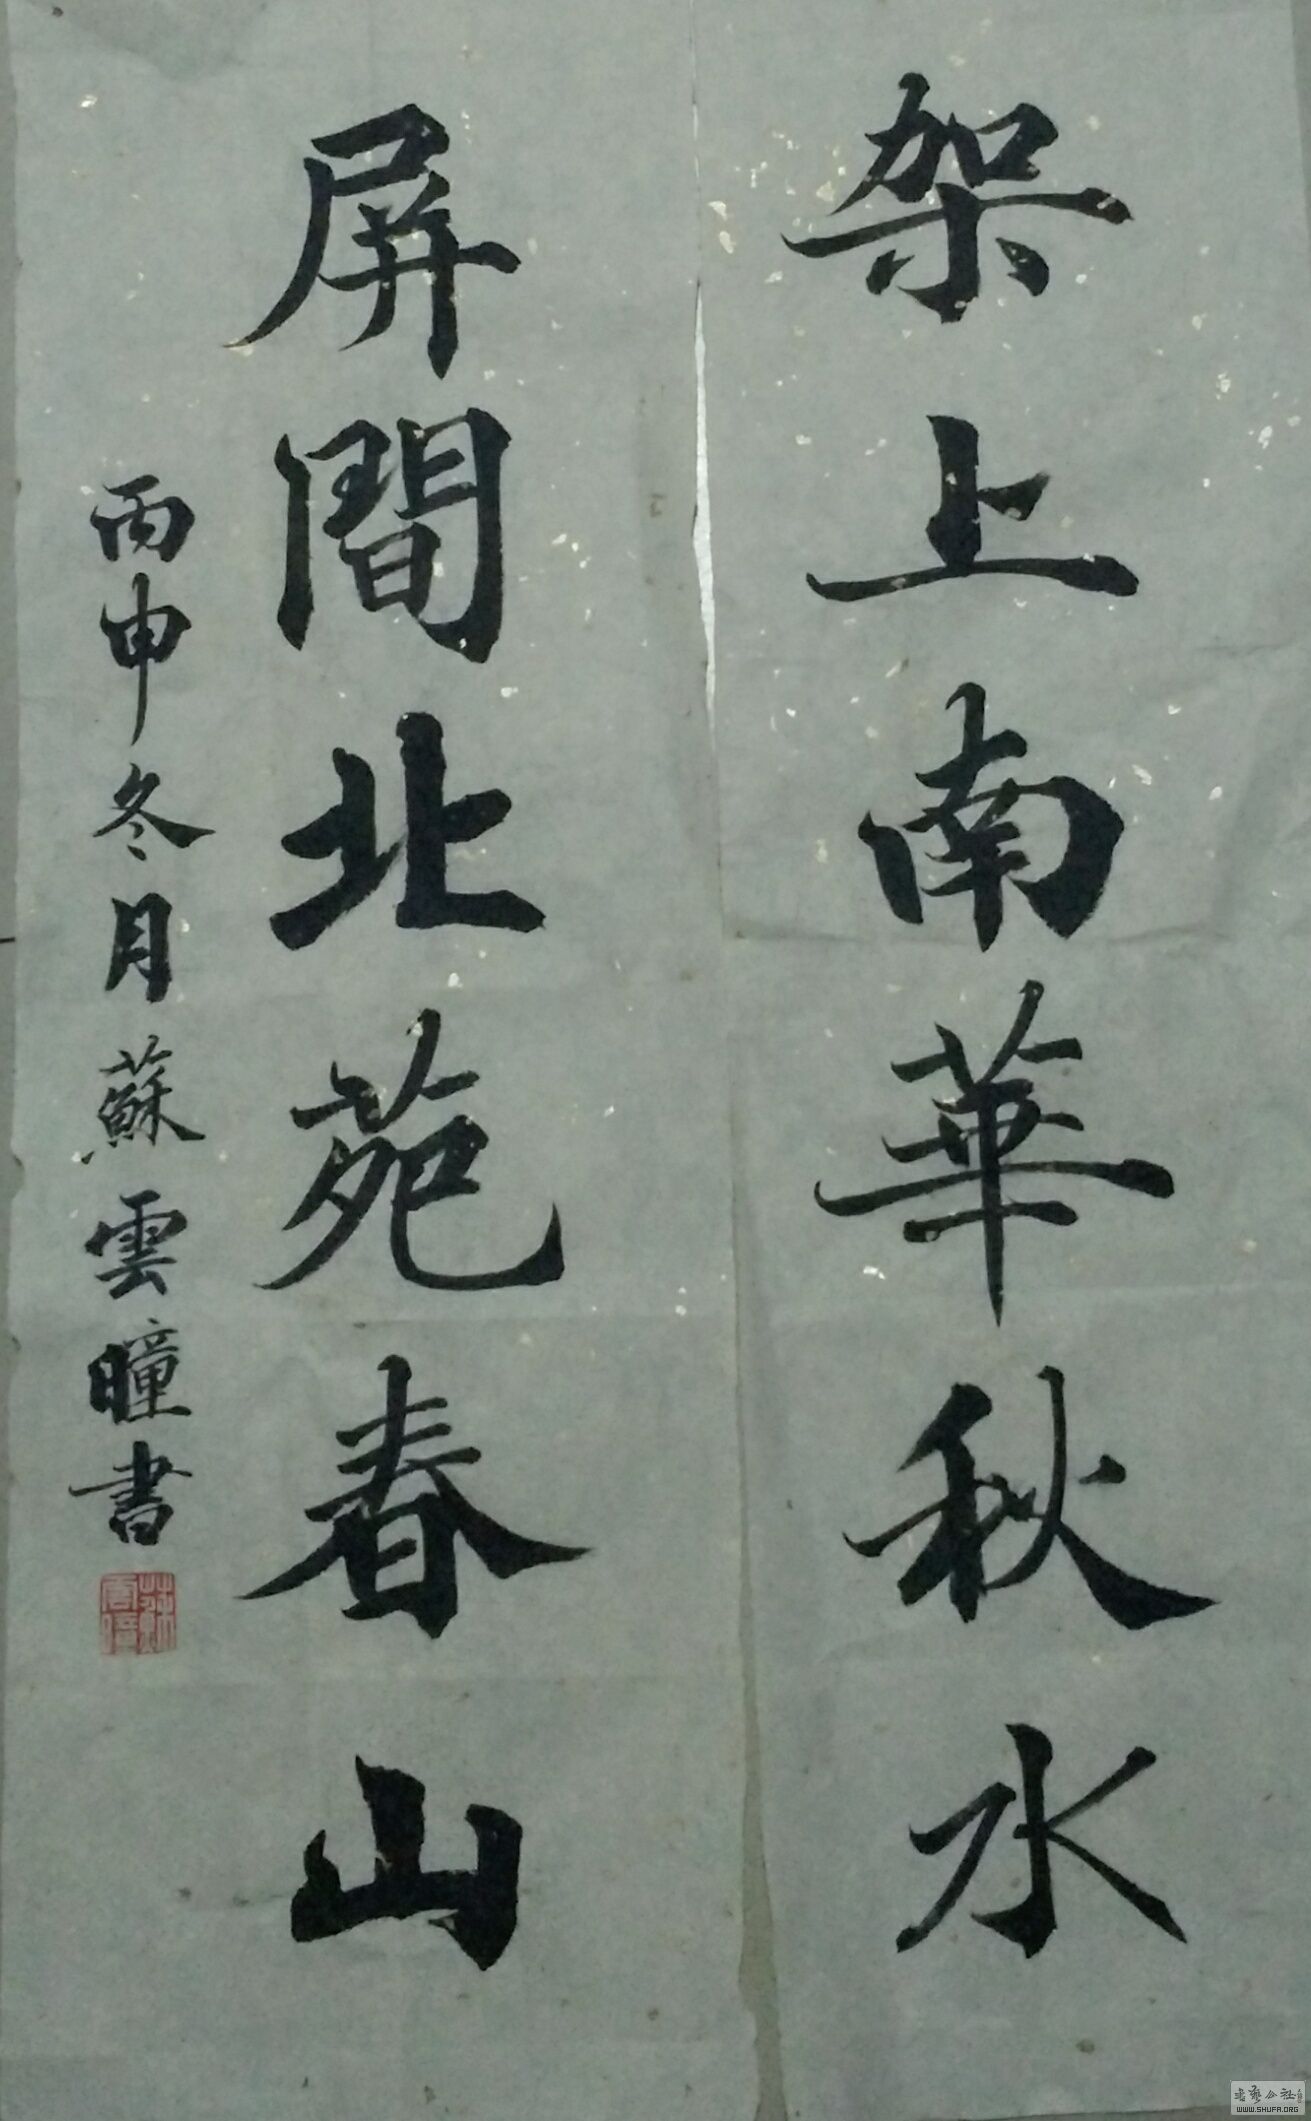 架上南華秋水
屏間北苑春山
丙申冬月蘇雲瞳書
WWW.SHUFA.ORG